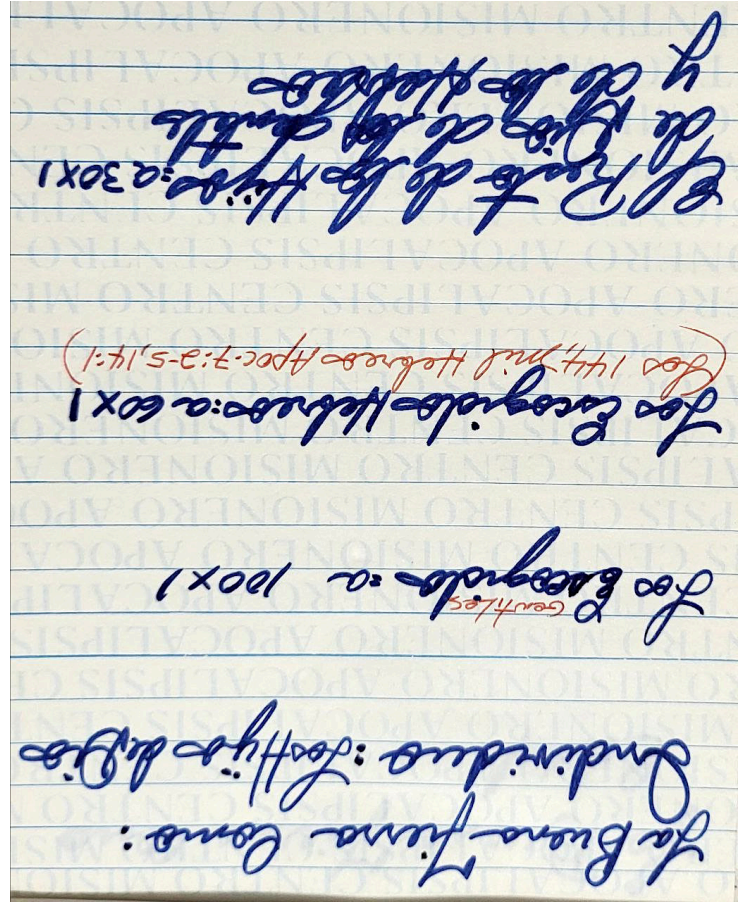 La Buena Tierra Como:
Individuo: Los Hijos de Dios
Gentiles
Los Escogidos = a 100x1
Los Escogidos Hebreos = a 60x1
(Los 144, mil Hebreos Apoc. 7:2-5, 14:1)
El Resto de los Hijos = a 30x1
de Dios de los gentiles
y de los Hebreos
CENTRO MISIONERO APOCALIPSIS